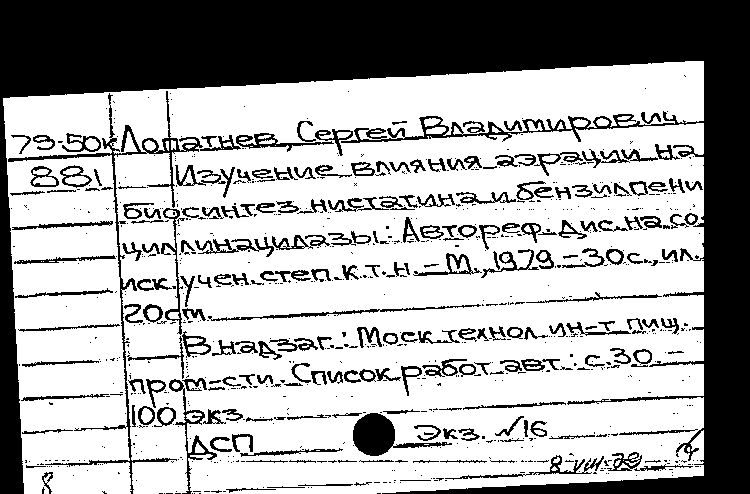 79-50к Лопатнев, Сергей Владимирович.
881 Изучение влияния аэрации на
биосинтез нистатина и бензилпени
циллинацилазы: Автореф. дис. на со-
иск. учен. степ. к.т.н. – М., 1979. – 30 с., ил.
20 см.
В надзаг.: Моск. технол. ин-т пищ.
пром-сти. Список работ авт.: с. 30. –
100 экз.
ДСП Экз. №16
8.VIII.79
8